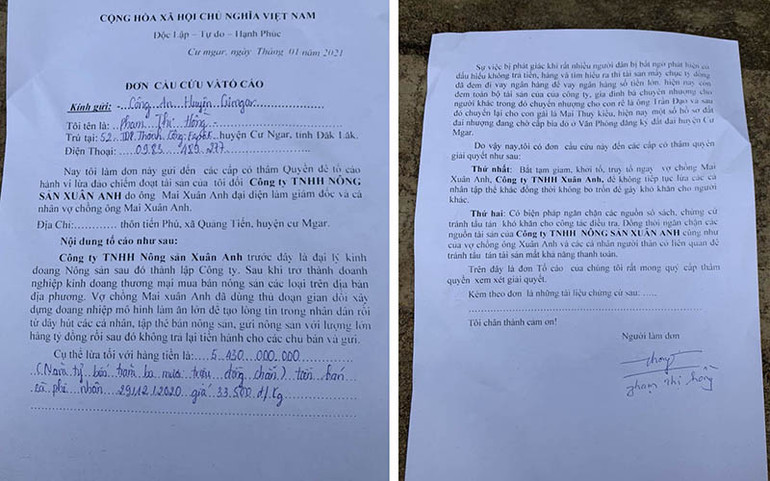 CỘNG HÒA XÃ HỘI CHỦ NGHĨA VIỆT NAM
Độc Lập – Tự do – Hạnh Phúc
Cư mgar, ngày Tháng 01 năm 2021
ĐƠN CẦU CỨU VÀ TỐ CÁO
Kính gửi: - Công An Huyện Cưmgar
Tôi tên là: Phạm Thị Hồng
Trú tại: 52. TDP. Thành Công Eapốk huyện Cư Ngar, tỉnh Đăk Lăk.
Điện Thoại: 0983 489 277
Nay tôi làm đơn này gửi đến các cấp có thẩm Quyền để tố cáo
hành vi lừa đảo chiếm đoạt tài sản của tôi đối Công ty TNHH NÔNG
SẢN XUÂN ANH do ông Mai Xuân Anh đại diện làm giám đốc và cá
nhân vợ chồng ông Mai Xuân Anh.
Địa Chỉ:............., thôn tiến Phú, xã Quảng Tiến, huyện cư Mgar.
Nội dung tố cáo như sau:
Công ty TNHH Nông sản Xuân Anh trước đây là đại lý kinh
doang Nông sản sau đó thành lập Công ty. Sau khi trơ thành doanh
nghiệp kinh doang thương mại mua bán nông sản các loại trên địa bàn
địa phương. Vợ chồng Mai xuân Anh đã dùng thủ đoạn gian dối xây
dựng doang nhiệp mô hình làm ăn lớn để tạo lòng tin trong nhân dân rồi
từ đây hút các cá nhân, tập thể bán nông sản, gưi nông sản với lượng lớn
hàng tỷ đồng rồi sau đó không tra lại tiền hành cho các chu bán và gưi.
Cụ thể lừa tối với hàng tiền là:.... 5 430 000 000
(Năm tỷ bốn trăm ba mươi triệu đồng chẵn) tiền bán
cà phê nhân 29.12.2020 giá 33.500 đ/kg
Sự việc bị phát giác khi rất nhiều người dân bị bất ngờ phát hiện có
dấu hiểu không trả tiền, hàng và tìm hiểu ra thì tài sản mày chục tỷ đồng
đã đem đi vay ngân hàng để vay ngân hàng số tiền lớn, hiện nay còn
đem toàn bộ tài san của của công ty, gia đình bà chuyển nhượng cho
người khác trong đó chuyển nhượng cho con rể là ông Trần Đạo và sau
đó chuyển lại cho con gái là Mai Thuỵ kiều, hiện nay một số hồ sơ đất
đai nhượng đang chờ cấp bìa đo ở Văn Phòng đăng ký đất đai huyện Cư
Mgar.
Do vậy nay,tôi có đơn cầu cứu này đến các cấp có thẩm quyền
giải quyết như sau:
Thứ nhất: Bắt tạm giam, khơi tố, truy tố ngay vợ chồng Mai
Xuân Anh, Công ty TNHH Xuân Anh, để không tiếp tục lừa các cá
nhân tập thể khác đồng thời không bo trốn để gây khó khăn cho người
khác.
Thứ hai: Có biện pháp ngăn chặn các nguồn sô sách, chứng cứ
tránh tẩu tán khó khăn cho công tác điều tra. Đồng thời ngăn chặn các
nguồn tài sản của Công ty TNHH NÔNG SẢN XUÂN ANH cũng như
của vợ chồng ông Xuân Anh và các cá nhân người thân có liên quan để
tránh tẩu tán tài sản mất khả năng thanh toán.
Trên đây là đơn Tố cáo cua chúng tôi rất mong quý cấp thẩm
quyền xem xét giải quyết.
Kèm theo đơn là những tài liệu chứng cứ sau: .....
Tôi chân thành cảm ơn!
Người làm đơn
phạm thị hồng